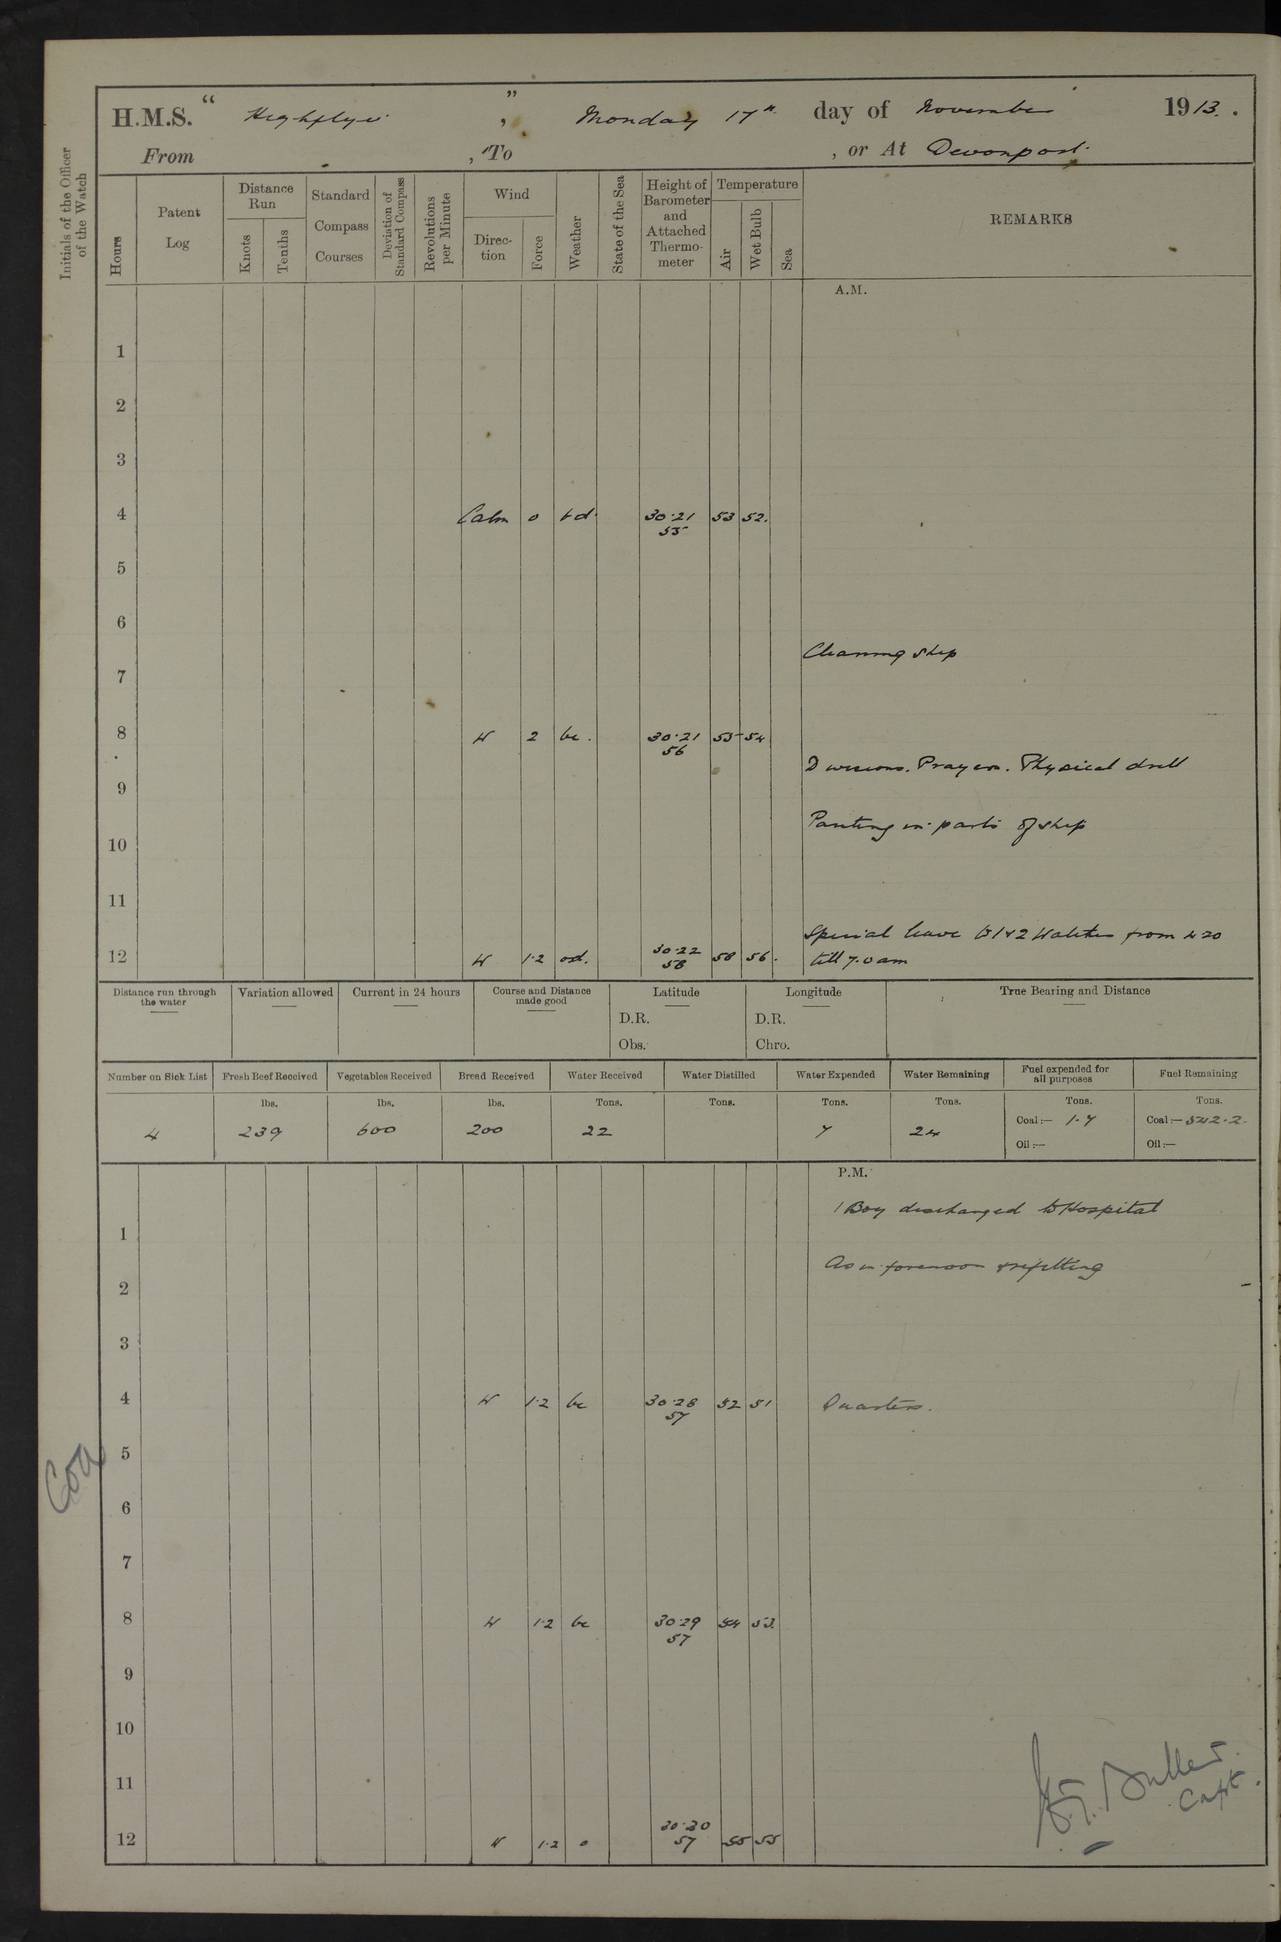 H.M.S. " Highflyer ", Monday 17th day of November 1913.
From , To , or At Devonport.
Initials of the Officer of the Watch
Hours Patent Log Distance Run Knots Tenths Standard Compass Courses Deviation of Standard Compass Revolutions per Minute Wind Direction Force Weather State of the Sea Height of Barometer and Attached Thermometer Temperature Air Wet Bulb Sea REMARKS
A.M.
1
2
3
4 Calm 0 30.21 53 52.
55
5
6
Cleaning ship
7
8 W 2 bc. 30.21 55 54
56
Divisions. Prayers. Physical drill
9
Painting in parts of ship
10
11
Special leave to 1 & 2 Watches from 4 20
12 W 1.2 od. 30.22 58 56. till 7.0 am
58
Distance run through the water Variation allowed Current in 24 hours Course and Distance made good Latitude Longitude True Bearing and Distance
D.R. D.R.
Obs. Chro.
Number on Sick List Fresh Beef Received Vegetables Received Bread Received Water Received Water Distilled Water Expended Water Remaining Fuel expended for all purposes Fuel Remaining
lbs. lbs. lbs. Tons. Tons. Tons. Tons. Tons. Tons.
4 239 600 200 22 7 24 Coal:— 1.7 Coal:— 542.2
Oil:— Oil:—
P.M.
1 Boy discharged to Hospital
1
As in forenoon & refitting
2
3
4 W 1.2 bc 30.28 52 51 Quarters.
57
5
Coa
6
7
8 W 1.2 bc 30.29 54 53.
57
9
10
11
Buller
Capt.
12 W 1.2 o 30.30 55 55
57